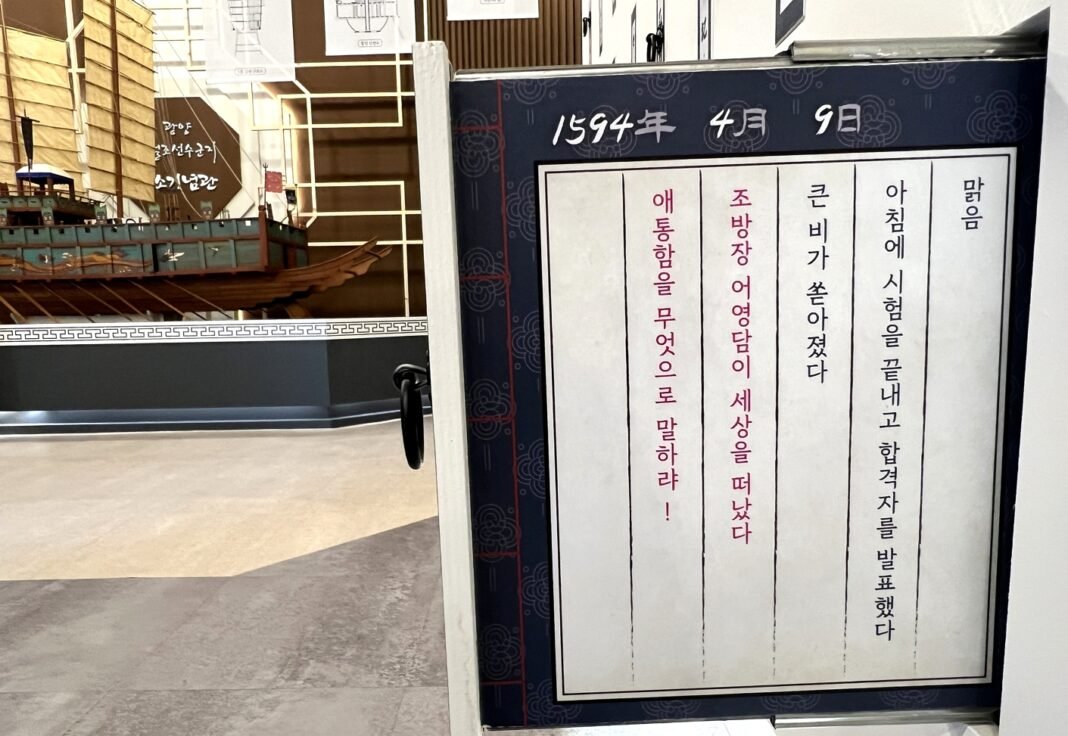 1594年 4月 9日
맑음
아침에 시험을 끝내고 합격자를 발표했다
큰 비가 쏟아졌다
조방장 어영담이 세상을 떠났다
애통함을 무엇으로 말하랴 !
광양
조선수군지
소기념관